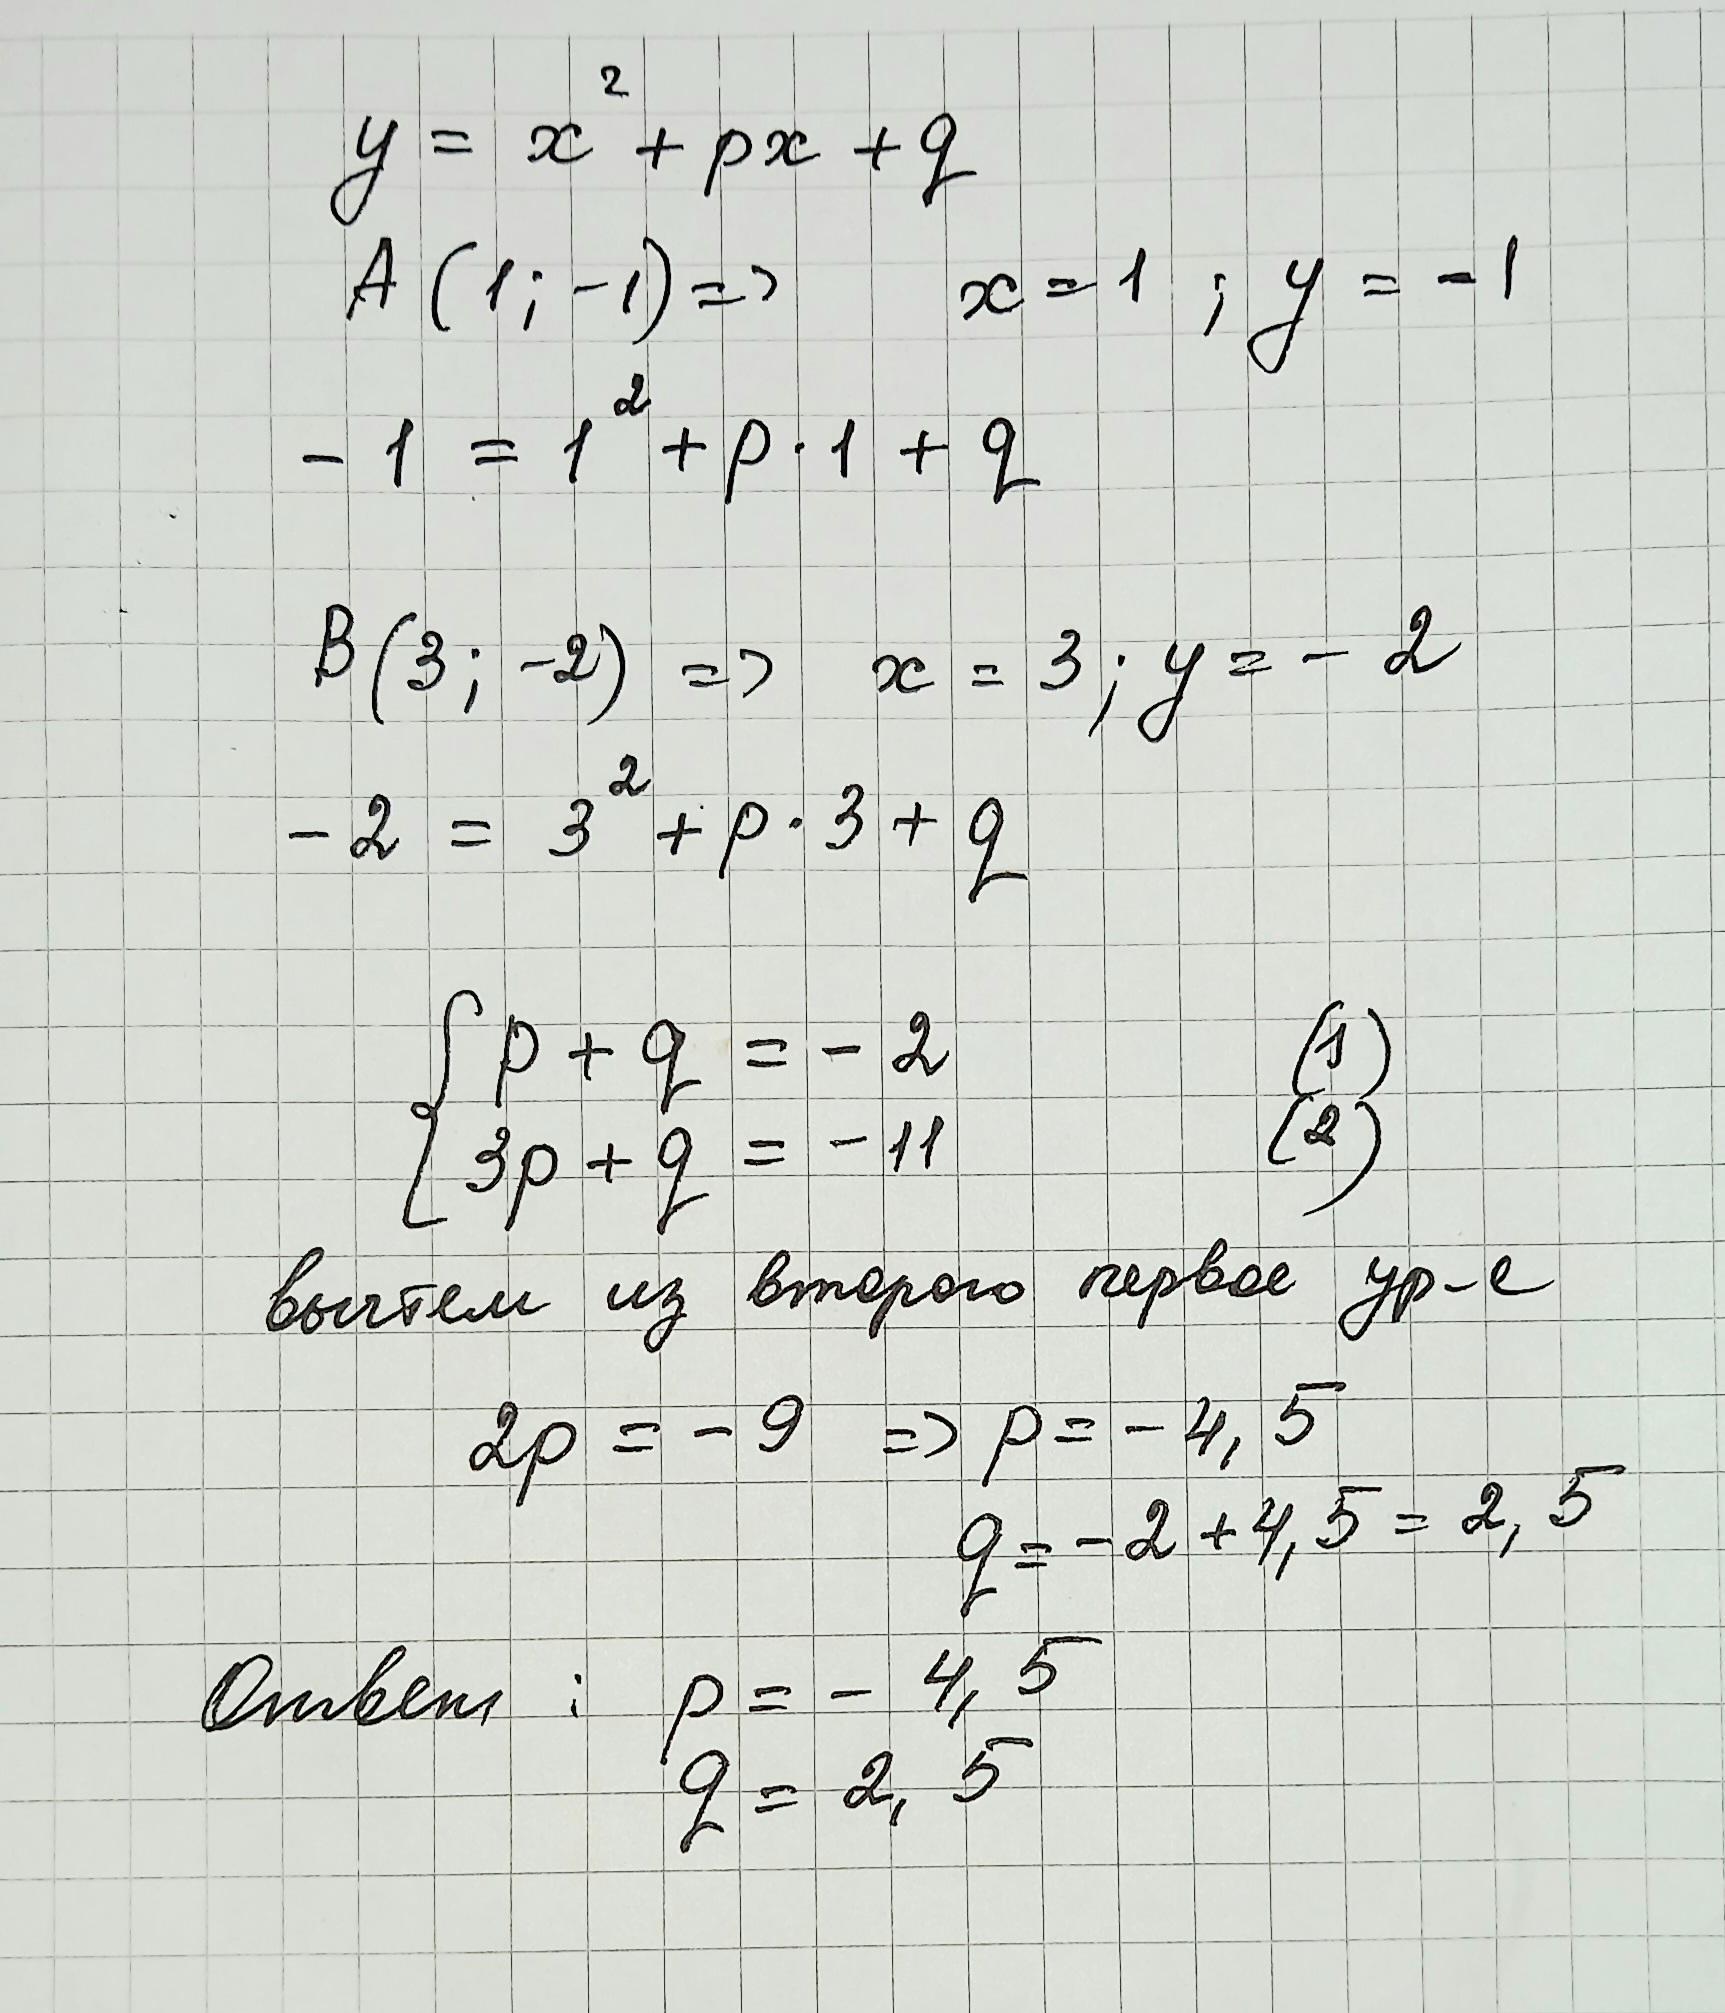 y = x² + px + q
A (1; -1) => x = 1 ; y = -1
-1 = 1² + p · 1 + q
B (3; -2) => x = 3; y = -2
-2 = 3² + p · 3 + q
{ p + q = -2 (1)
3p + q = -11 (2)
вычтем из второго первое ур-е
2p = -9 => p = -4,5
q = -2 + 4,5 = 2,5
Ответ : p = -4,5
q = 2,5